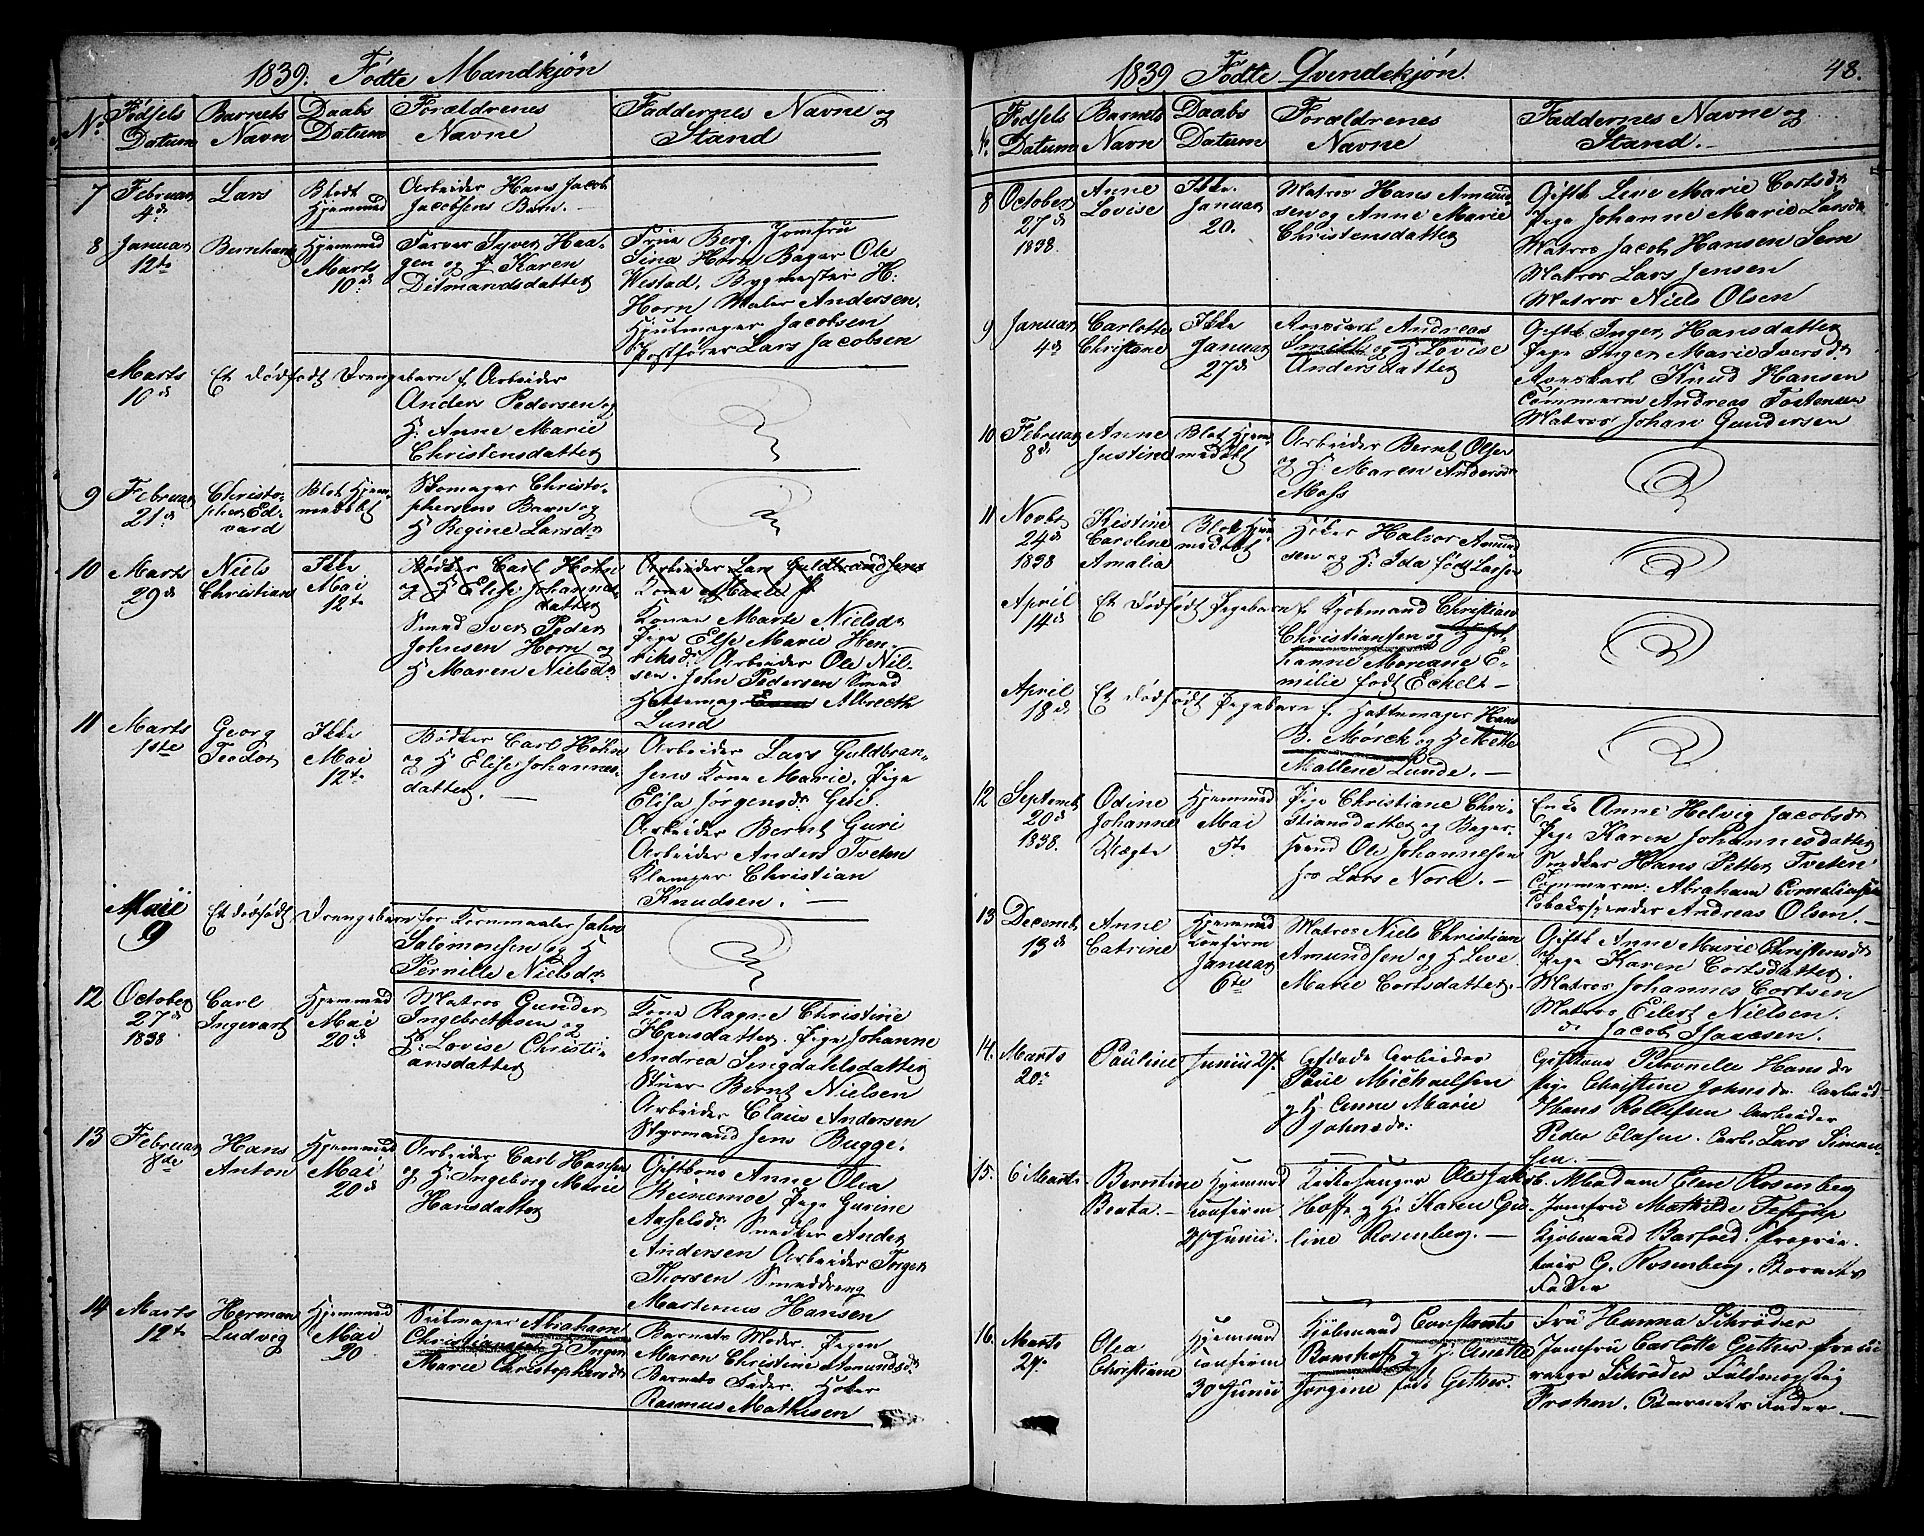 1839. Fødte Mandkjøn
No. Fødsels Datum
Barnets Navn
Daabs Datum
Forældrenes Navne
Faddernes Navne og Stand
7 Februar 4de
Lars
Blodt Hjemmed
Arbeider Hans Jacob
Jacobsens Barn. —
8 Januar 12te
Bernhard
Hjemmed
Marts 10de
Farver Syver Haa-
gen og H Karen
Ditmandsdatter
Frue Berg, Jomfru
Sina Horn Bager Ole
Westad, Bygmester H:
Horn Maler Andersen,
Hjulmager Jacobsen
Lars Jacobsen
Marts 10de
Et dødfødt Drengebarn f. Arbeider
Anders Pedersen og
H: Anne Marie
Christensdatter
9 Februar 21de
Christo-
pher Ed-
vard
Blot Hjem-
medøbt
Skomager Christo-
phersens Barn og
H Regine Larsdr
10 Marts 29de
Niels
Christian
Ikke
Mai
12te
Bødker Carl Høhn
og H Elise Johannes-
datter
Smed Iver Peder
Johnsen Horn og
H Maren Nielsdr
Arbeider Lars Guldbrandsens
Kone Marie
Konen Marte Nielsdr
Pige Else Marie Hen-
riksdr Arbeider Ole Niel-
sen. John Pedersen Smed
Hattemag Albrecth
Lund
11 Marts 1ste
Georg
Teodor
Ikke
Mai
12te
Bødker Carl Høhn
og H Elise Johannes-
datter. —
Arbeider Lars Guldbran-
sens Kone Marie, Pige
Elisa Jørgensdr Gui.
Arbeider Bernt Guri
Arbeider Anders Tveten
Klamper Christian
Knudsen. —
Maii 9
Et dødfødt Drengebarn for Kornmaaler John
Salomonsen og H
Pernille Nielsdr
12 October 27de 1838
Carl
Ingevart
Hjemmed
Mai
20de
Matros Gunder
Ingebrethsen og
H: Lovise Christi-
ansdatter
Kone Ragne Christine
Hansdatter. Pige Johanne
Andrea Singdahlsdatter
Stuer Bernt Nielsen
Arbeider Claus Andersen
Styrmand Jens Bugge.
13 Februar 8de
Hans
Anton
Hjemmed
Mai
20de
Arbeider Carl Hansen
og H: Ingeborg Marie
Hansdatter
Giftkone Anne Olea
Reinemoe Pige Gurine
Axelsdr Snedker Ander
Andersen Arbeider Torger
Thorsen Smeddreng
Marternus Hansen
14 Marts 12te
Herman
Ludvig
Hjemmed
Mai
20
Seilmager Abraham
Christiansen og H Inger
Marie Christophersdr
Barnets Moder. Pigen
Maren Christine Amundsdr
Barnets Fader. Høker
Rasmus Mathisen
1839 Fødte Qvindekjøn.
48.
No. Fødsels Datum
Barnets Navn
Daabs Datum
Forældrenes Navne
Faddernes Navne og Stand. —
8 October 27de 1838.
Anne
Lovise
Ikke.
Januar
20.
Matros Hans Amund
sen og Anne Marie
Christensdatter
Gift Live Marie Cortsdr
Pige Johanne Marie Larsdr
Matros Jacob Hansen Sem
Matros Lars Jensen
Matros Niels Olsen
9 Januar 4de
Carlotte
Christane
Ikke
Januar
27de
Andreas
Smith og H Lovise
Andersdatter
Gift Inger Hansdatter
Pige Inger Marie Iversdr
Knud Hansen
Tømmerm Andreas Tostensen
Matros Johan Gundersen
10 Februar 8de
Anne
Justine
Blot Hjem-
medøbt
Arbeider Bernt Olsen
og H: Maren Andersdr
Moss
11 Novbr 24de 1838
Kistine
Caroline
Amalia
Blot Hjem
medøbt
Høker Halvor Amund
sen og H: Ida født Lassen
April 14de
Et dødfødt Pigebarn f. Kjøbmand Christian
Christiansen og H Jo-
hanne Mariane E-
milie født Eckelt —
April 18de
Et dødfødt Pigebarn f. Hattemager Hans
B. Mörck og H Mette
Mallene Lunde. —
12 Septembr 20de 1838.
Odine
Johanne
Uægte
Hjemmed
Mai
5te
Pige Christiane Chri-
stiansdatter og Bager-
svend Ole Johannesen
hos Lars Nord. —
Enke Anne Helvig Jacobsdr
Pige Karen Johannesdatter
Snedker Hans Petter Tveten
Tømmerm. Abraham Corneliusen
Tobakspinder Andreas Olsen. —
13 Decembr 13de
Anne
Catrine
Hjemmed
confirm
Januar
6te
Matros Niels Christian
Amundsen og H Live
Marie Cortsdatter.
Gift Anne Marie Christensdr
Pige Karen Cortsdatter.
Matros Johannes Cortsen
Matros Eilert Nielsen.
do Jacob Isaacsen.
14. Marts 20.
Pauline
Junii 2.
Afdøde Arbeider
Poue Michaelsen
og H. Anne Marie
Johnsdr:
Giftkone Petronelle Hansdr
Pige Christine Johnsdr Arbeid
Hans Rollefsen Arbeider
Peder Olafsen. Arb. Lars Simon-
sen. —
15. 6 Marts
Berntine
Berta. —
Hjemmed
confirm
Junii.
Kirkesanger Ole Jakob.
Hoff og H: Karen Gu-
line Rosenberg. —
Madam Elen Rosenberg
Jomfru Mathilde
Kjøbmand Barfod. Proprie-
tair G. Rosenberg. Barnets
Fader
16. Marts 24.
Olea
Christiane
Hjemmed
confirm
30 Junii
Kjøbmand Constants
Bomhoff og H. Anette
Jorgine født Gether.
Fru Hanna Schrøder
Jomfru Carlotte Gether
Schrøder
Barnets Fader. —